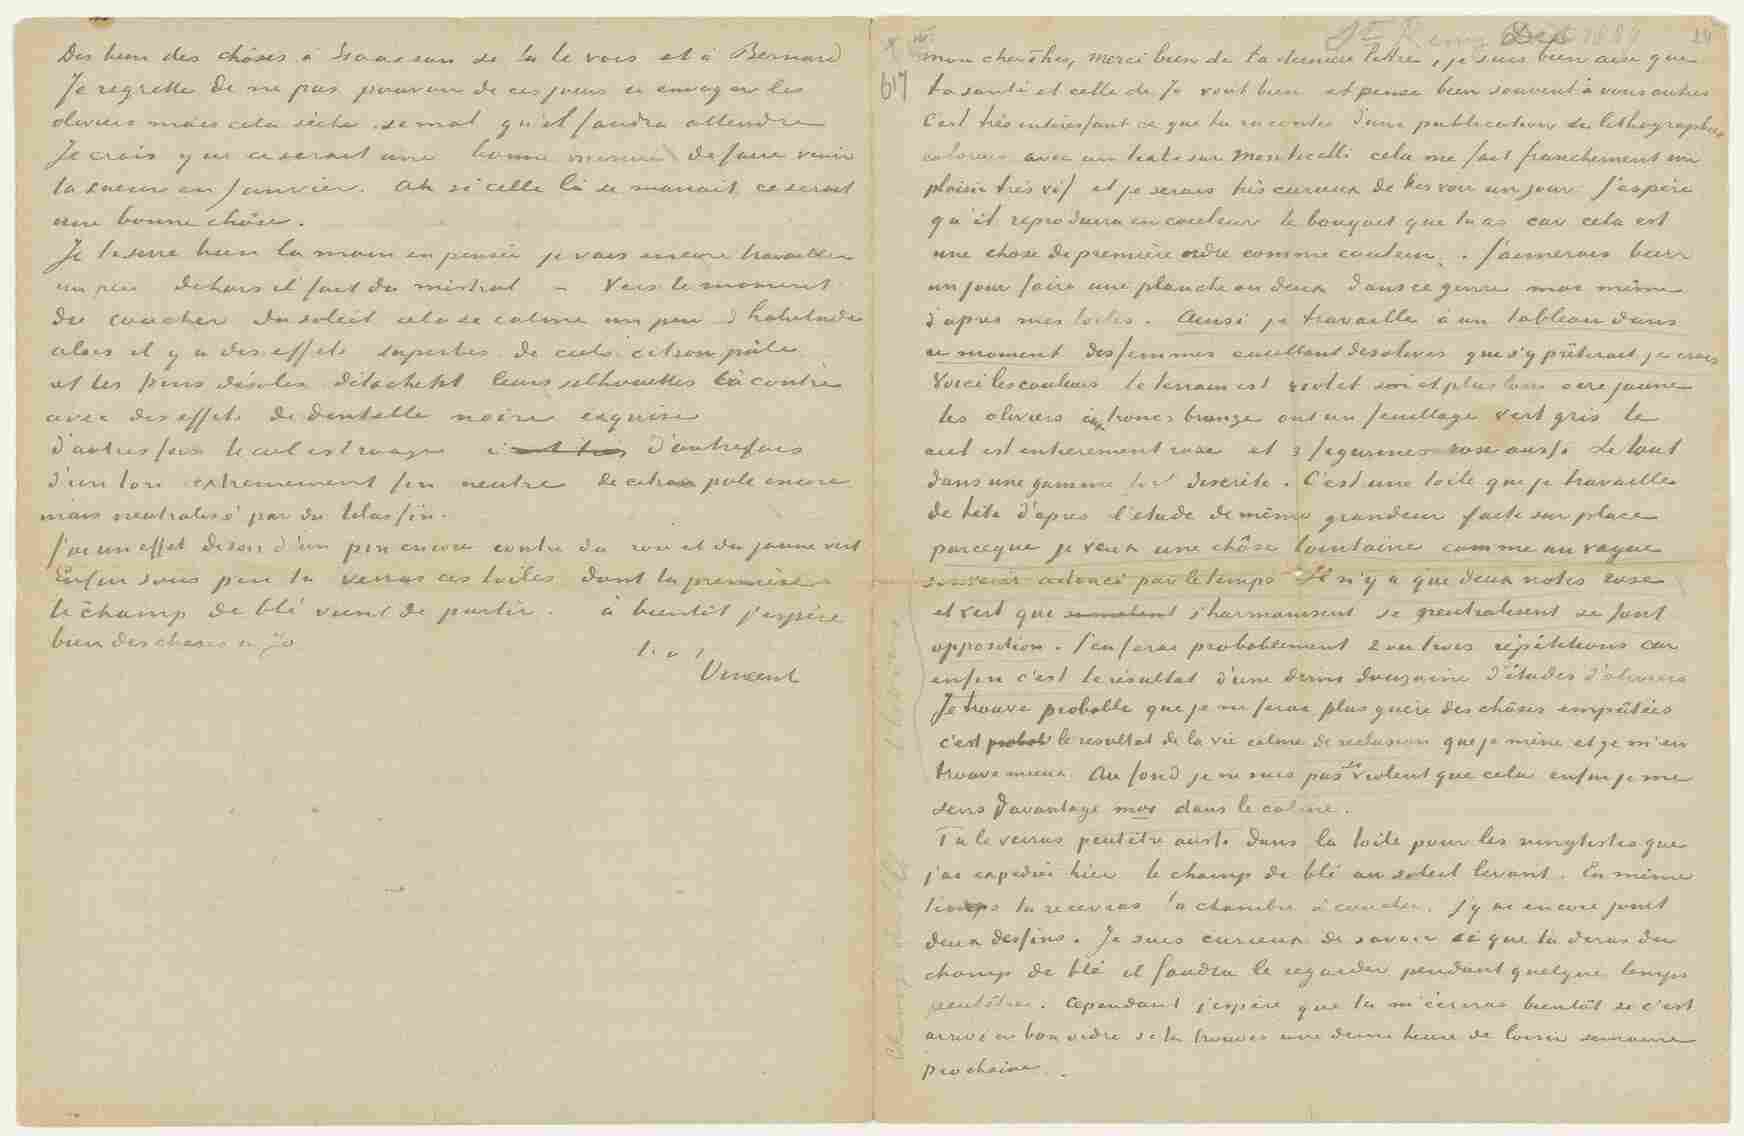 Des bien des chôses à Isaäcson si tu le vois et à Bernard
Je regrette de ne pas pouvoir de ces jours ci envoyer les
oliviers mais cela sèche si mal qu'il faudra attendre
Je crois que ce serait une bonne mesure de faire venir
ta soeur en Janvier. Ah si celle là se mariait ce serait
une bonne chôse.
Je te serre bien la main en pensée je vais encore travailler
un peu dehors il fait du mistral – Vers le moment
du coucher du soleil cela se calme un peu d'habitude
alors il y a des effets superbes de ciels citron pâle
et les pins désolés détachent leurs silhouettes là contre
avec des effets de dentelle noire exquise
d'autres fois le ciel est rouge d'autrefois
d'un ton extremement fin neutre de citron pâle encore
mais neutralisé par du lilas fin.
J'ai un effet de soir d'un pin encore contre du rose et du jaune vert
Enfin sous peu tu verras ces toiles dont la première
le champ de blé vient de partir. à bientôt j'espère
bien des choses à Jo
t. à t.
Vincent
St Remy Dec 1889
617
mon cher Theo, merci bien de ta dernière lettre, je suis bien aise que
ta santé et celle de Jo vont bien et pense bien souvent à vous autres
C'est très intéressant ce que tu racontes d'une publication de lithographies
coloriées avec un texte sur Monticelli cela me fait franchement un
plaisir très vif et je serais très curieux de les voir un jour. J'espère
qu'il reproduira en couleur le bouquet que tu as car cela est
une chose de première ordre comme couleur. J'aimerais bien
un jour faire une planche ou deux dans ce genre moi même
d'après mes toiles. Ainsi je travaille à un tableau dans
ce moment des femmes cueillant des olives que s'y prêterait je crois
Voici les couleurs le terrain est violet soi et plus loin ocre jaune
les oliviers aux troncs bronze ont un feuillage vert gris le
ciel est entierement rose et 3 figurines rose aussi. Le tout
dans une gamme très discrète. C'est une toile que je travaille
de tête d'après l'étude de même grandeur faite sur place
parceque je veux une chôse lointaine comme un vague
souvenir adouci par le temps Il n'y a que deux notes rose
et vert que s'harmonisent se neutralisent se font
opposition. J'en ferai probablement 2 ou trois répétitions car
enfin c'est le résultat d'une demi douzaine d'études d'oliviers
Je trouve probable que je ne ferai plus guère des chôses empâtées
c'est le resultat de la vie calme de reclusion que je mène et je m'en
trouve mieux. Au fond je ne suis pas si violent que cela enfin je me
sens davantage moi dans le calme.
Tu le verras peutêtre aussi dans la toile pour les vingtistes que
j'ai expediée hier le champ de blé au soleil levant. En même
temps tu recevras la chambre à coucher. J'y ai encore joint
deux dessins. Je suis curieux de savoir ce que tu diras du
champ de blé il faudra le regarder pendant quelque temps
peutêtre. Cependant j'espère que tu m'écriras bientôt si c'est
arrivé en bon ordre si tu trouves une demi heure de loisir semaine
prochaine.